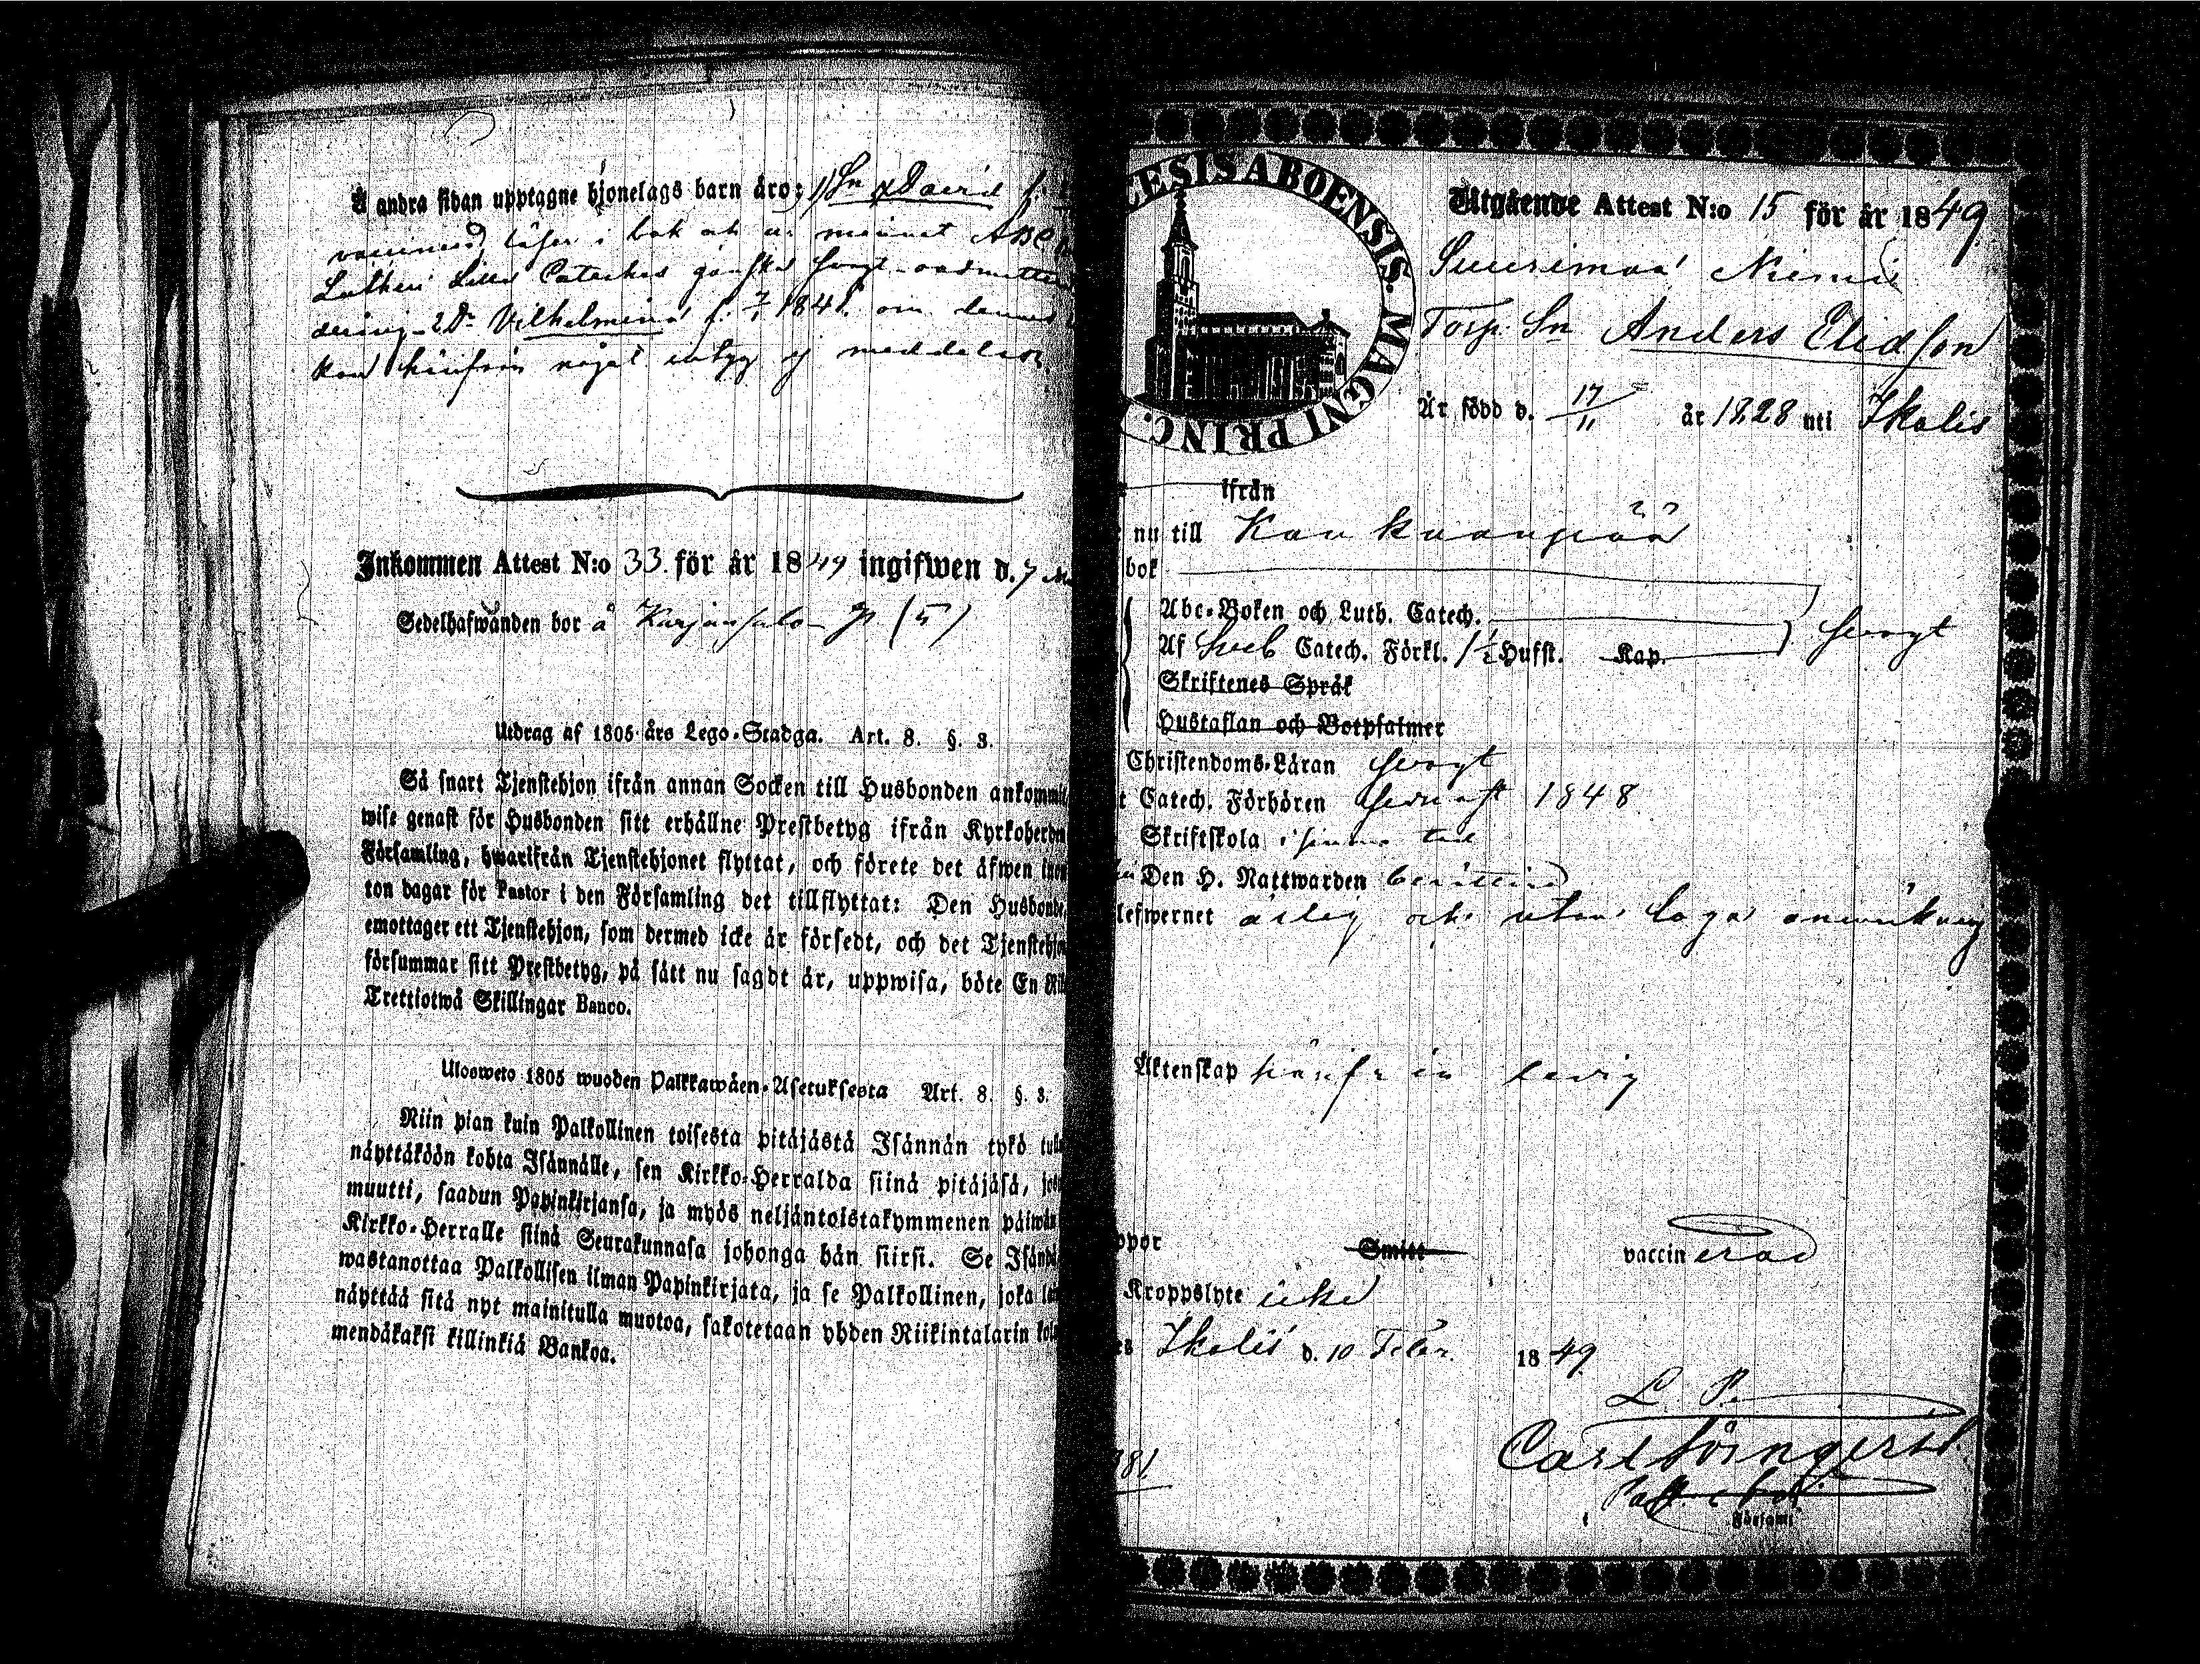 Å andra sidan upptagne hjonelags barn äro; 1) Sn David f.
läser i bok och ur minnet ABC
Lutheri Lilla Cateches ganska svagt
2 Dr Vilhelmina f. 1841. om denna
kan härifrån något intyg ej meddelas
Inkommen Attest N:o 33 för år 1849 ingifwen d. 7
Sedelhafwanden bor å Karjansalo (5)
Utdrag af 1805 års Lego-Stadga. Art. 8. §. 3.
Så snart Tjenstehjon ifrån annan Socken till Husbonden ankommit
wise genast för Husbonden sitt erhållne Prestbetyg ifrån Kyrkoherden
Församling, hwarifrån Tjenstehjonet flyttat, och förete det äfwen inom
ton dagar för Pastor i den Församling det tillflyttat: Den Husbonde,
emottager ett Tjenstehjon, som dermed icke är försedt, och det Tjenstehjon
försummar sitt Prestbetyg, på sätt nu sagdt är, uppwisa, böte En
Trettiotwå Skillingar Banco.
Ulosweto 1805 wuoden Palkkawäen-Asetuksesta Art. 8. §. 3.
Niin pian kuin Palkollinen toisesta pitäjästä Isännän tykö
näyttäköön kohta Isännälle, sen Kirkko-Herralda siinä pitäjäsä,
muutti, saadun Papinkirjansa, ja myös neljäntoistakymmenen päiwän
Kirkko-Herralle siinä Seurakunnasa johonga hän siirsi. Se Isändä
wastanottaa Palkollisen ilman Papinkirjata, ja se Palkollinen, joka
näyttää sitä nyt mainitulla muotoa, sakotetaan yhden Riikintalarin
mendäkaksi killinkiä Bankoa.
CESIS ABOENSIS. MAGNI PRINC.
Utgående Attest N:o 15 för år 1849
Suurimaa Niemi
Torp. Sn Anders Elidsson
Är född d. 17/11 år 1828 uti Ikalis
ifrån
nu till Kankaanpää
bok
Abc-Boken och Luth. Catech.
Af Sveb Catech. Förkl. 1 1/2 Hufst. Kap. svagt
Skriftenes Språk
Hustaflan och Botpsalmer
Christendoms-Läran svagt
Catech. Förhören senast 1848
Skriftskola i sinom tid
Den H. Nattwarden
lefwernet ärlig och utan laga anmärkning
Äktenskap härifrån ledig
ppor Smitt vaccinerad
Kroppslyte icke
Ikalis d. 10 Febr. 1849
L. P.
Carl
Församl.